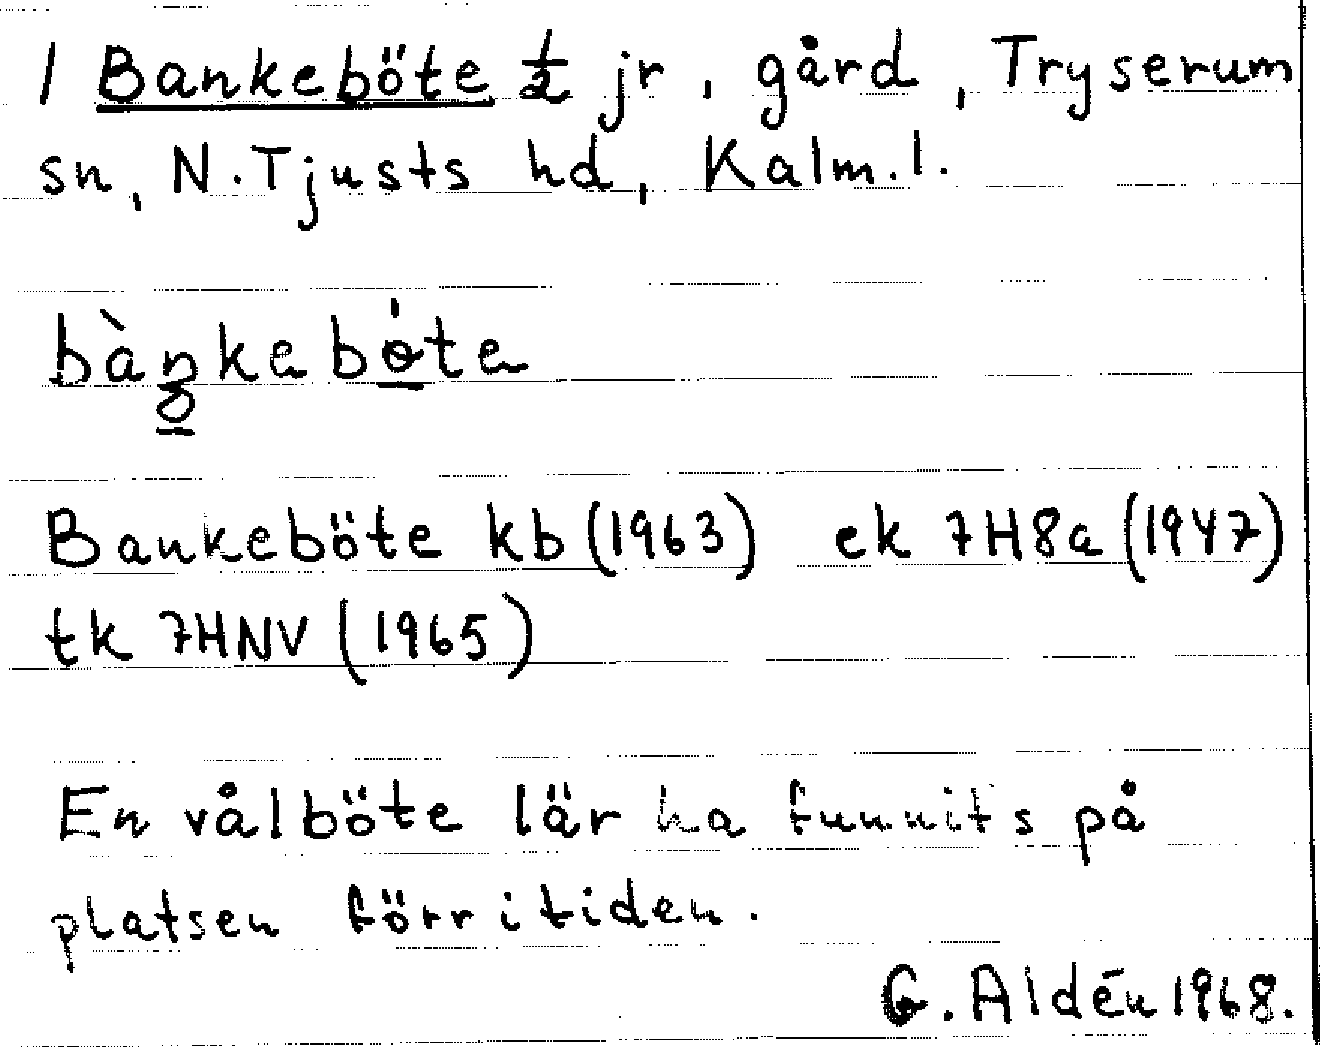 1 Bankeböte ½ jr, gård, Tryserum
sn, N. Tjusts hd, Kalm. l.
bàŋkebö́te
Bankeböte kb (1963) ek 7H8a (1947)
tk 7HNV (1965)
En vålböte lär ha funnits på
platsen förr i tiden.
G. Aldén 1968.